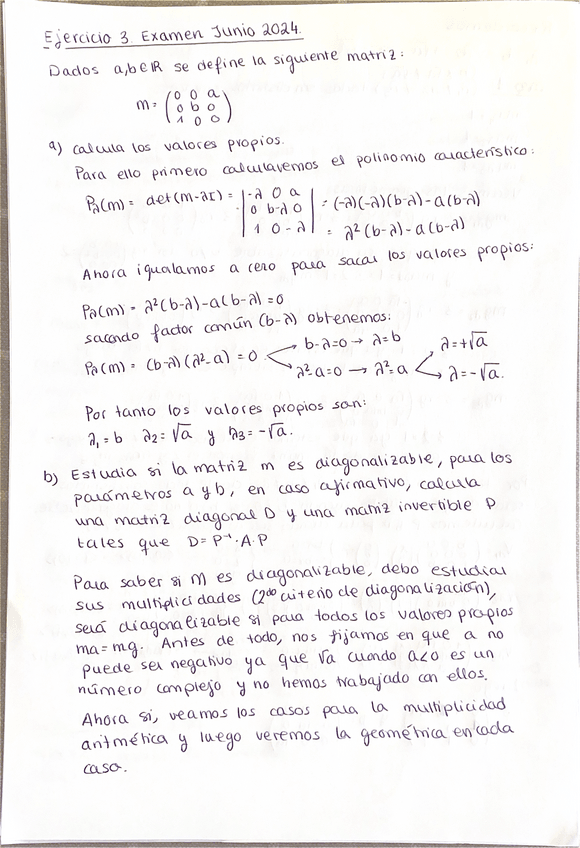 Ejercicio 3. Examen Junio 2024.
Dados a,b∈ℝ se define la siguiente matriz:
M = (0 0 a
0 b 0
1 0 0)
a) calcula los valores propios.
Para ello primero calcularemos el polinomio característico:
Pλ(M) = det(M-λI) = |-λ 0 a| = (-λ)(-λ)(b-λ) - a(b-λ)
|0 b-λ 0|
|1 0 -λ| = λ²(b-λ) - a(b-λ)
Ahora igualamos a cero para sacar los valores propios:
Pλ(M) = λ²(b-λ)-a(b-λ)=0
sacando factor común (b-λ) obtenemos:
λ=+√a
b-λ=0 → λ=b
Pλ(M) = (b-λ)(λ²-a) = 0
λ²-a=0 → λ²=a
λ=-√a.
Por tanto los valores propios son:
λ₁=b λ₂=√a y λ₃=-√a.
b) Estudia si la matriz M es diagonalizable, para los
parámetros a y b, en caso afirmativo, calcula
una matriz diagonal D y una matriz invertible P
tales que D=P⁻¹·A·P
Para saber si M es diagonalizable, debo estudiar
sus multiplicidades (2do criterio de diagonalización),
será diagonalizable si para todos los valores propios
ma=mg. Antes de todo, nos fijamos en que a no
puede ser negativo ya que √a cuando a<0 es un
número complejo y no hemos trabajado con ellos.
Ahora si, veamos los casos para la multiplicidad
aritmética y luego veremos la geométrica en cada
caso.